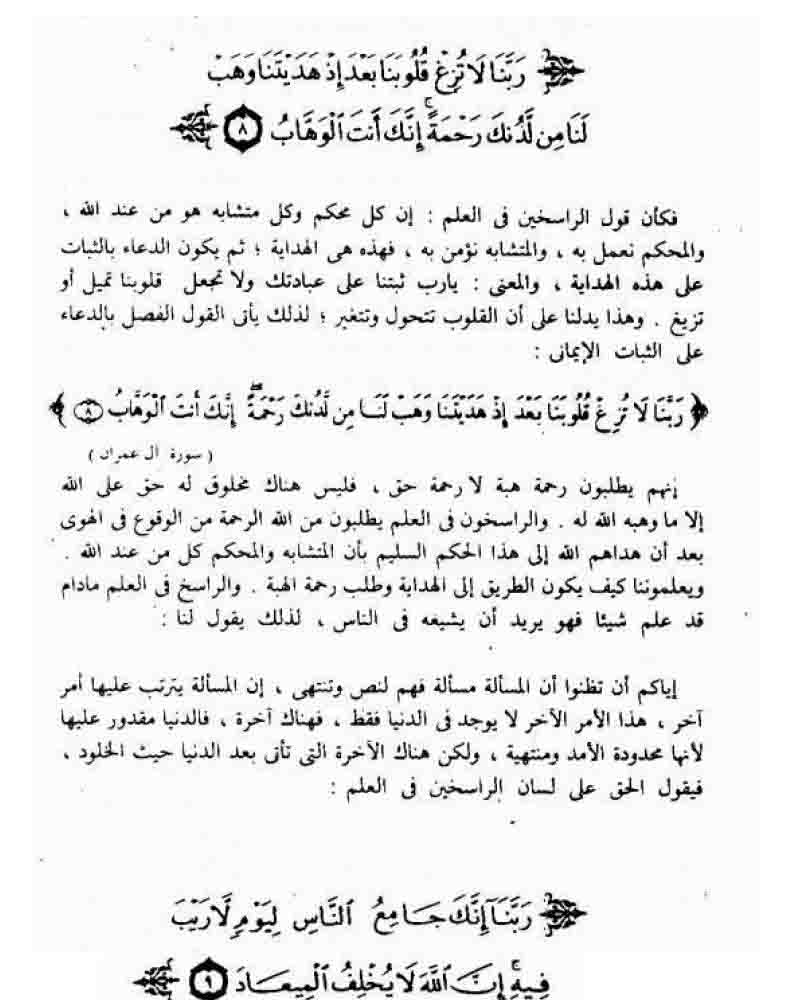 رَبَّنَا لَا تُزِغْ قُلُوبَنَا بَعْدَ إِذْ هَدَيْتَنَا وَهَبْ
لَنَا مِن لَّدُنكَ رَحْمَةً ۚ إِنَّكَ أَنتَ ٱلْوَهَّابُ ٨
فكأن قول الراسخين فى العلم : إن كل محكم وكل متشابه هو من عند الله ،
والمحكم نعمل به ، والمتشابه نؤمن به ، فهذه هى الهداية ؛ ثم يكون الدعاء بالثبات
على هذه الهداية ، والمعنى : يارب ثبتنا على عبادتك ولا تجعل قلوبنا تميل أو
تزيغ . وهذا يدلنا على أن القلوب تتحول وتتغير ؛ لذلك يأتى القول الفصل بالدعاء
على الثبات الإيمانى :
﴿ رَبَّنَا لَا تُزِغْ قُلُوبَنَا بَعْدَ إِذْ هَدَيْتَنَا وَهَبْ لَنَا مِن لَّدُنكَ رَحْمَةً ۖ إِنَّكَ أَنتَ ٱلْوَهَّابُ ٨ ﴾
( سورة آل عمران )
إنهم يطلبون رحمة هبة لا رحمة حق ، فليس هناك مخلوق له حق على الله
إلا ما وهبه الله له . والراسخون فى العلم يطلبون من الله الرحمة من الوقوع فى الهوى
بعد أن هداهم الله إلى هذا الحكم السليم بأن المتشابه والمحكم كل من عند الله .
ويعلموننا كيف يكون الطريق إلى الهداية وطلب رحمة الهبة . والراسخ فى العلم مادام
قد علم شيئا فهو يريد أن يشيعه فى الناس ، لذلك يقول لنا :
إياكم أن تظنوا أن المسألة مسألة فهم لنص وتنتهى ، إن المسألة يترتب عليها أمر
آخر ، هذا الأمر الآخر لا يوجد فى الدنيا فقط ، فهناك آخرة ، فالدنيا مقدور عليها
لأنها محدودة الأمد ومنتهية ، ولكن هناك الآخرة التى تأتى بعد الدنيا حيث الخلود ،
فيقول الحق على لسان الراسخين فى العلم :
رَبَّنَآ إِنَّكَ جَامِعُ ٱلنَّاسِ لِيَوْمٍ لَّا رَيْبَ
فِيهِ ۚ إِنَّ ٱللَّهَ لَا يُخْلِفُ ٱلْمِيعَادَ ٩